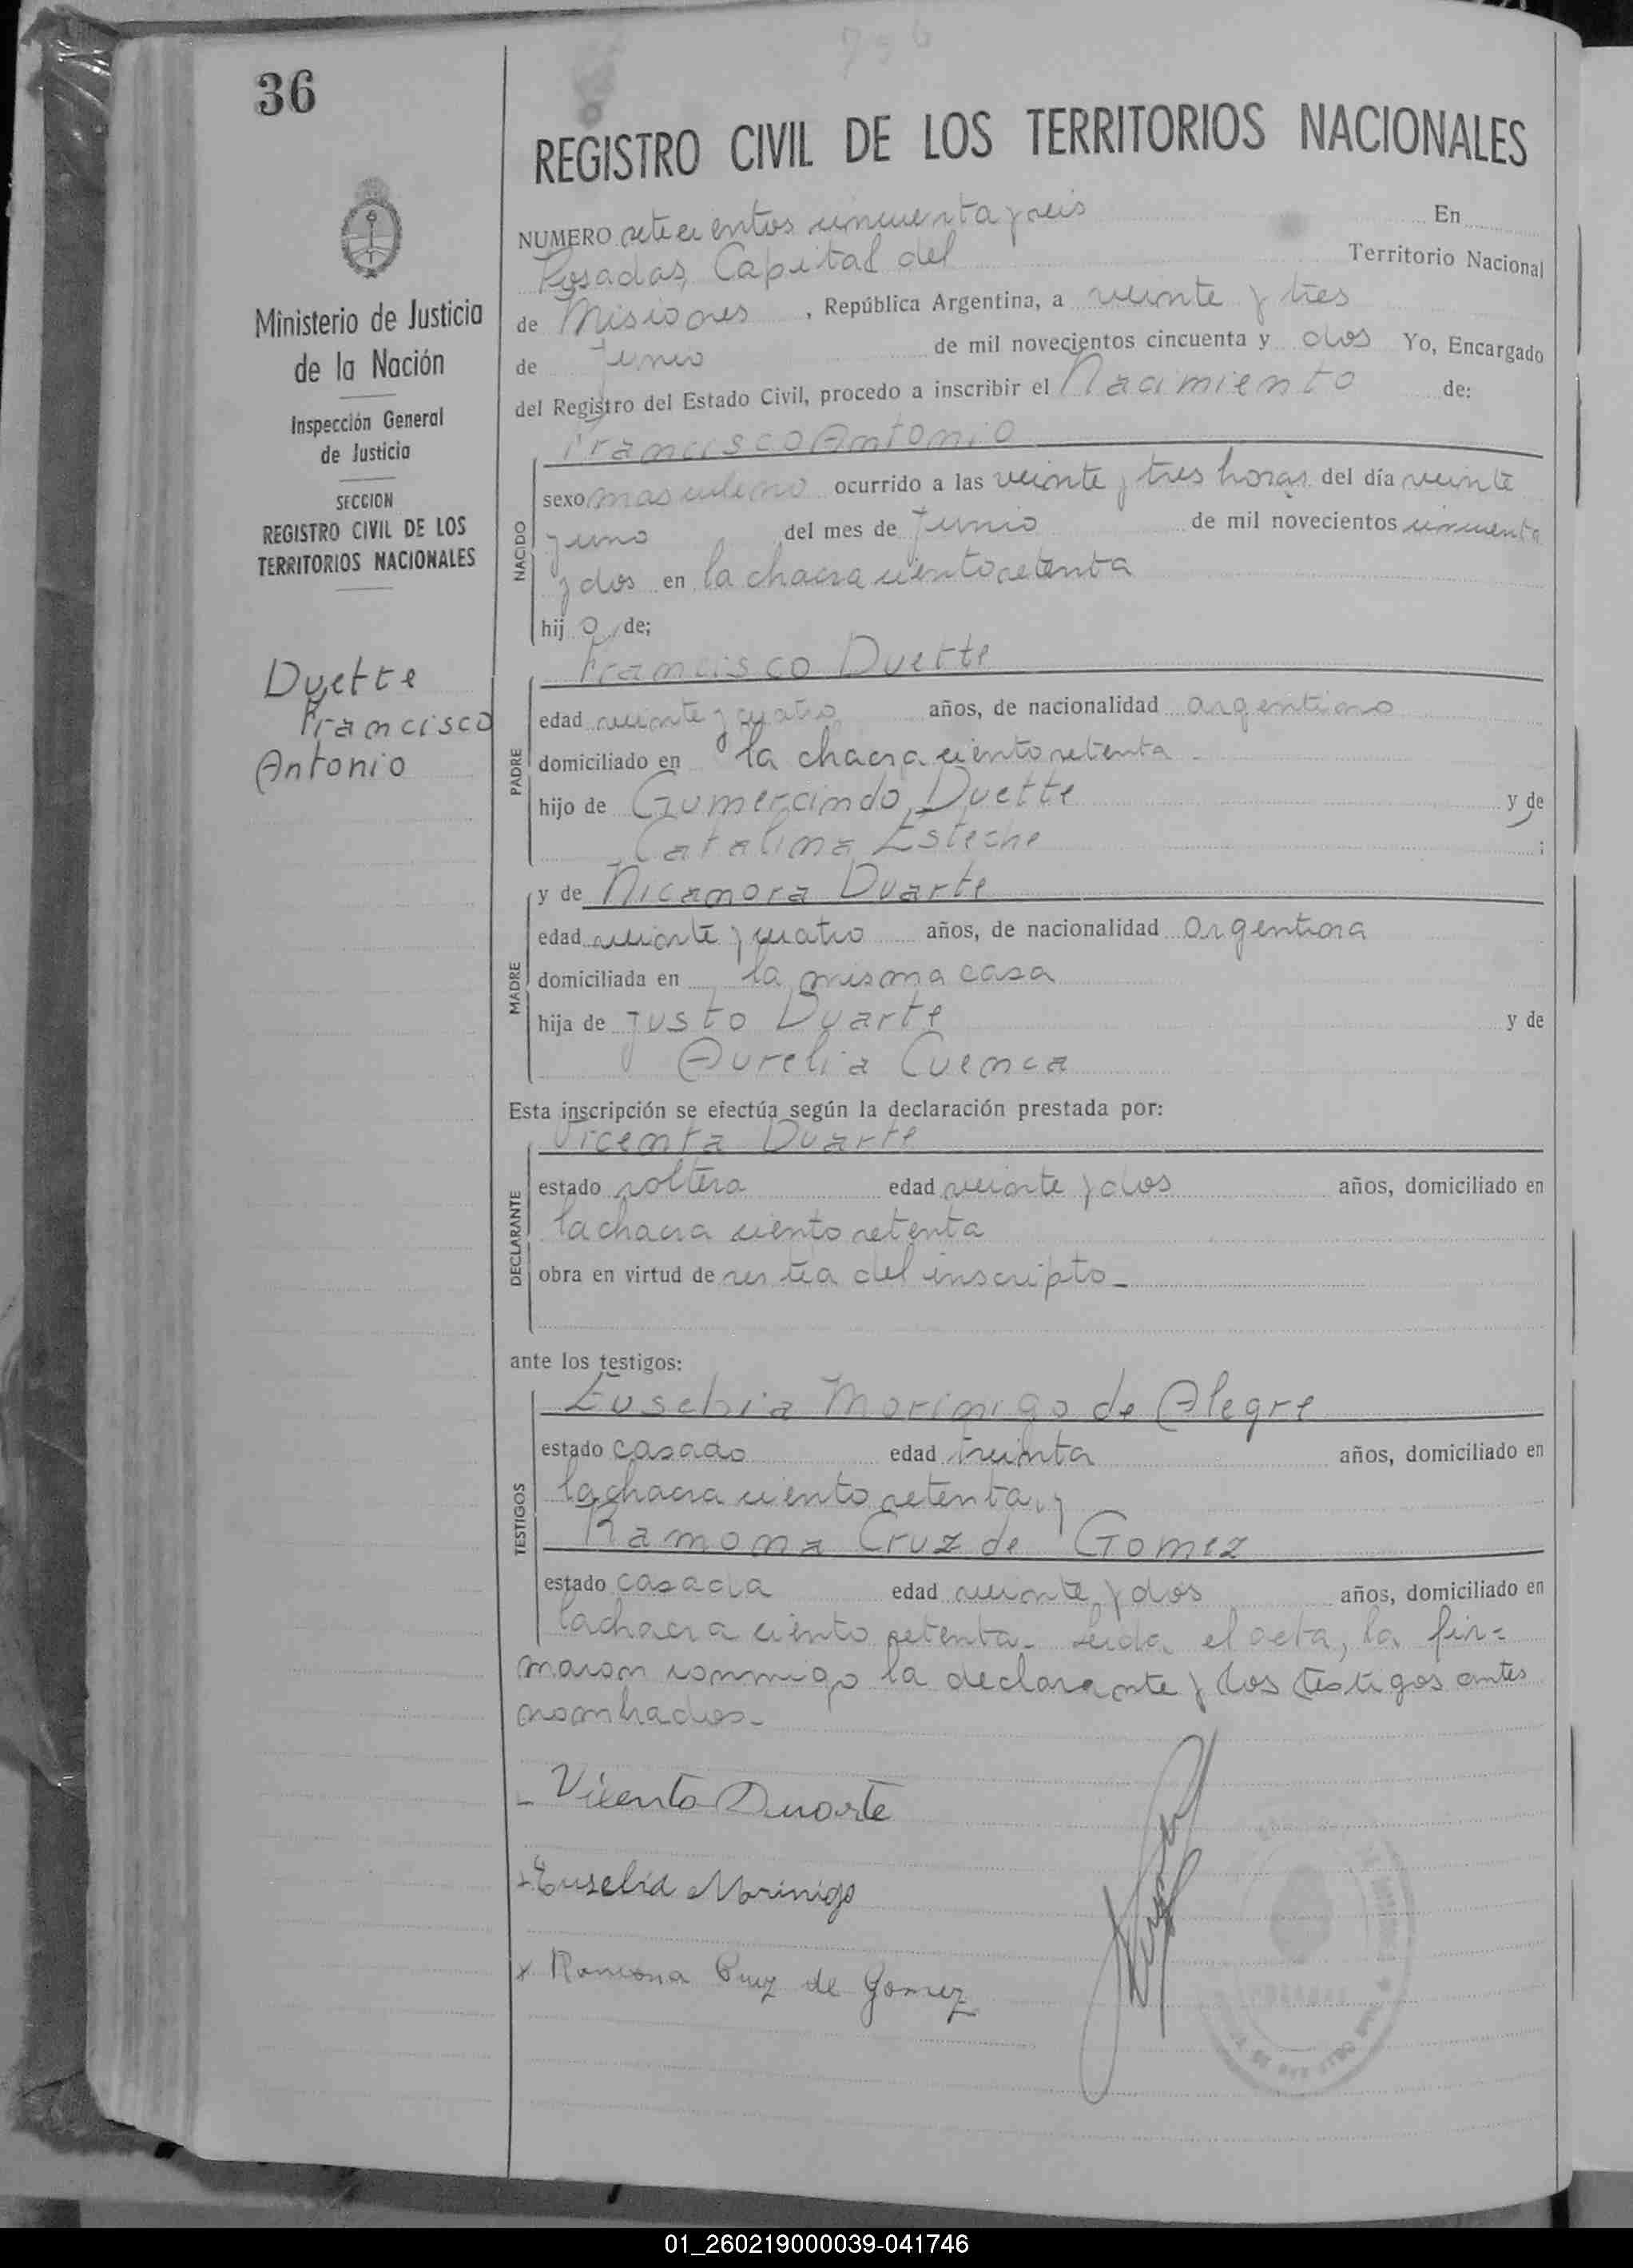 36
756
REGISTRO CIVIL DE LOS TERRITORIOS NACIONALES
Ministerio de Justicia
de la Nación
Inspección General
de Justicia
SECCION
REGISTRO CIVIL DE LOS
TERRITORIOS NACIONALES
Duette
Francisco
Antonio
NUMERO setecientos cincuenta y seis En
Posadas, Capital del Territorio Nacional
de Misiones, República Argentina, a veinte y tres
de Junio de mil novecientos cincuenta y dos Yo, Encargado
del Registro del Estado Civil, procedo a inscribir el Nacimiento de:
Francisco Antonio
NACIDO
sexo masculino ocurrido a las veinte y tres horas del día veinte
y uno del mes de Junio de mil novecientos cincuenta
y dos en la chacra ciento setenta
hijo de;
Francisco Duette
PADRE
edad veinte y cuatro años, de nacionalidad argentino
domiciliado en la chacra ciento setenta
hijo de Gumercindo Duette y de
Catalina Esteche ;
MADRE
y de Nicanora Duarte
edad veinte y cuatro años, de nacionalidad argentina
domiciliada en la misma casa
hija de Justo Duarte y de
Aurelia Cuenca
Esta inscripción se efectúa según la declaración prestada por:
Vicenta Duarte
DECLARANTE
estado soltera edad veinte y dos años, domiciliado en
la chacra ciento setenta
obra en virtud de ser tía del inscripto -
ante los testigos:
TESTIGOS
Eusebia Morinigo de Alegre
estado casado edad treinta años, domiciliado en
la chacra ciento setenta, y
Ramona Cruz de Gomez
estado casada edad veinte y dos años, domiciliado en
la chacra ciento setenta - Leida el acta, la fir=
maron conmigo la declarante y los testigos antes
nombrados -
Vicenta Duarte
Eusebia Morinigo
x Ramona Cruz de Gomez
01_260219000039-041746